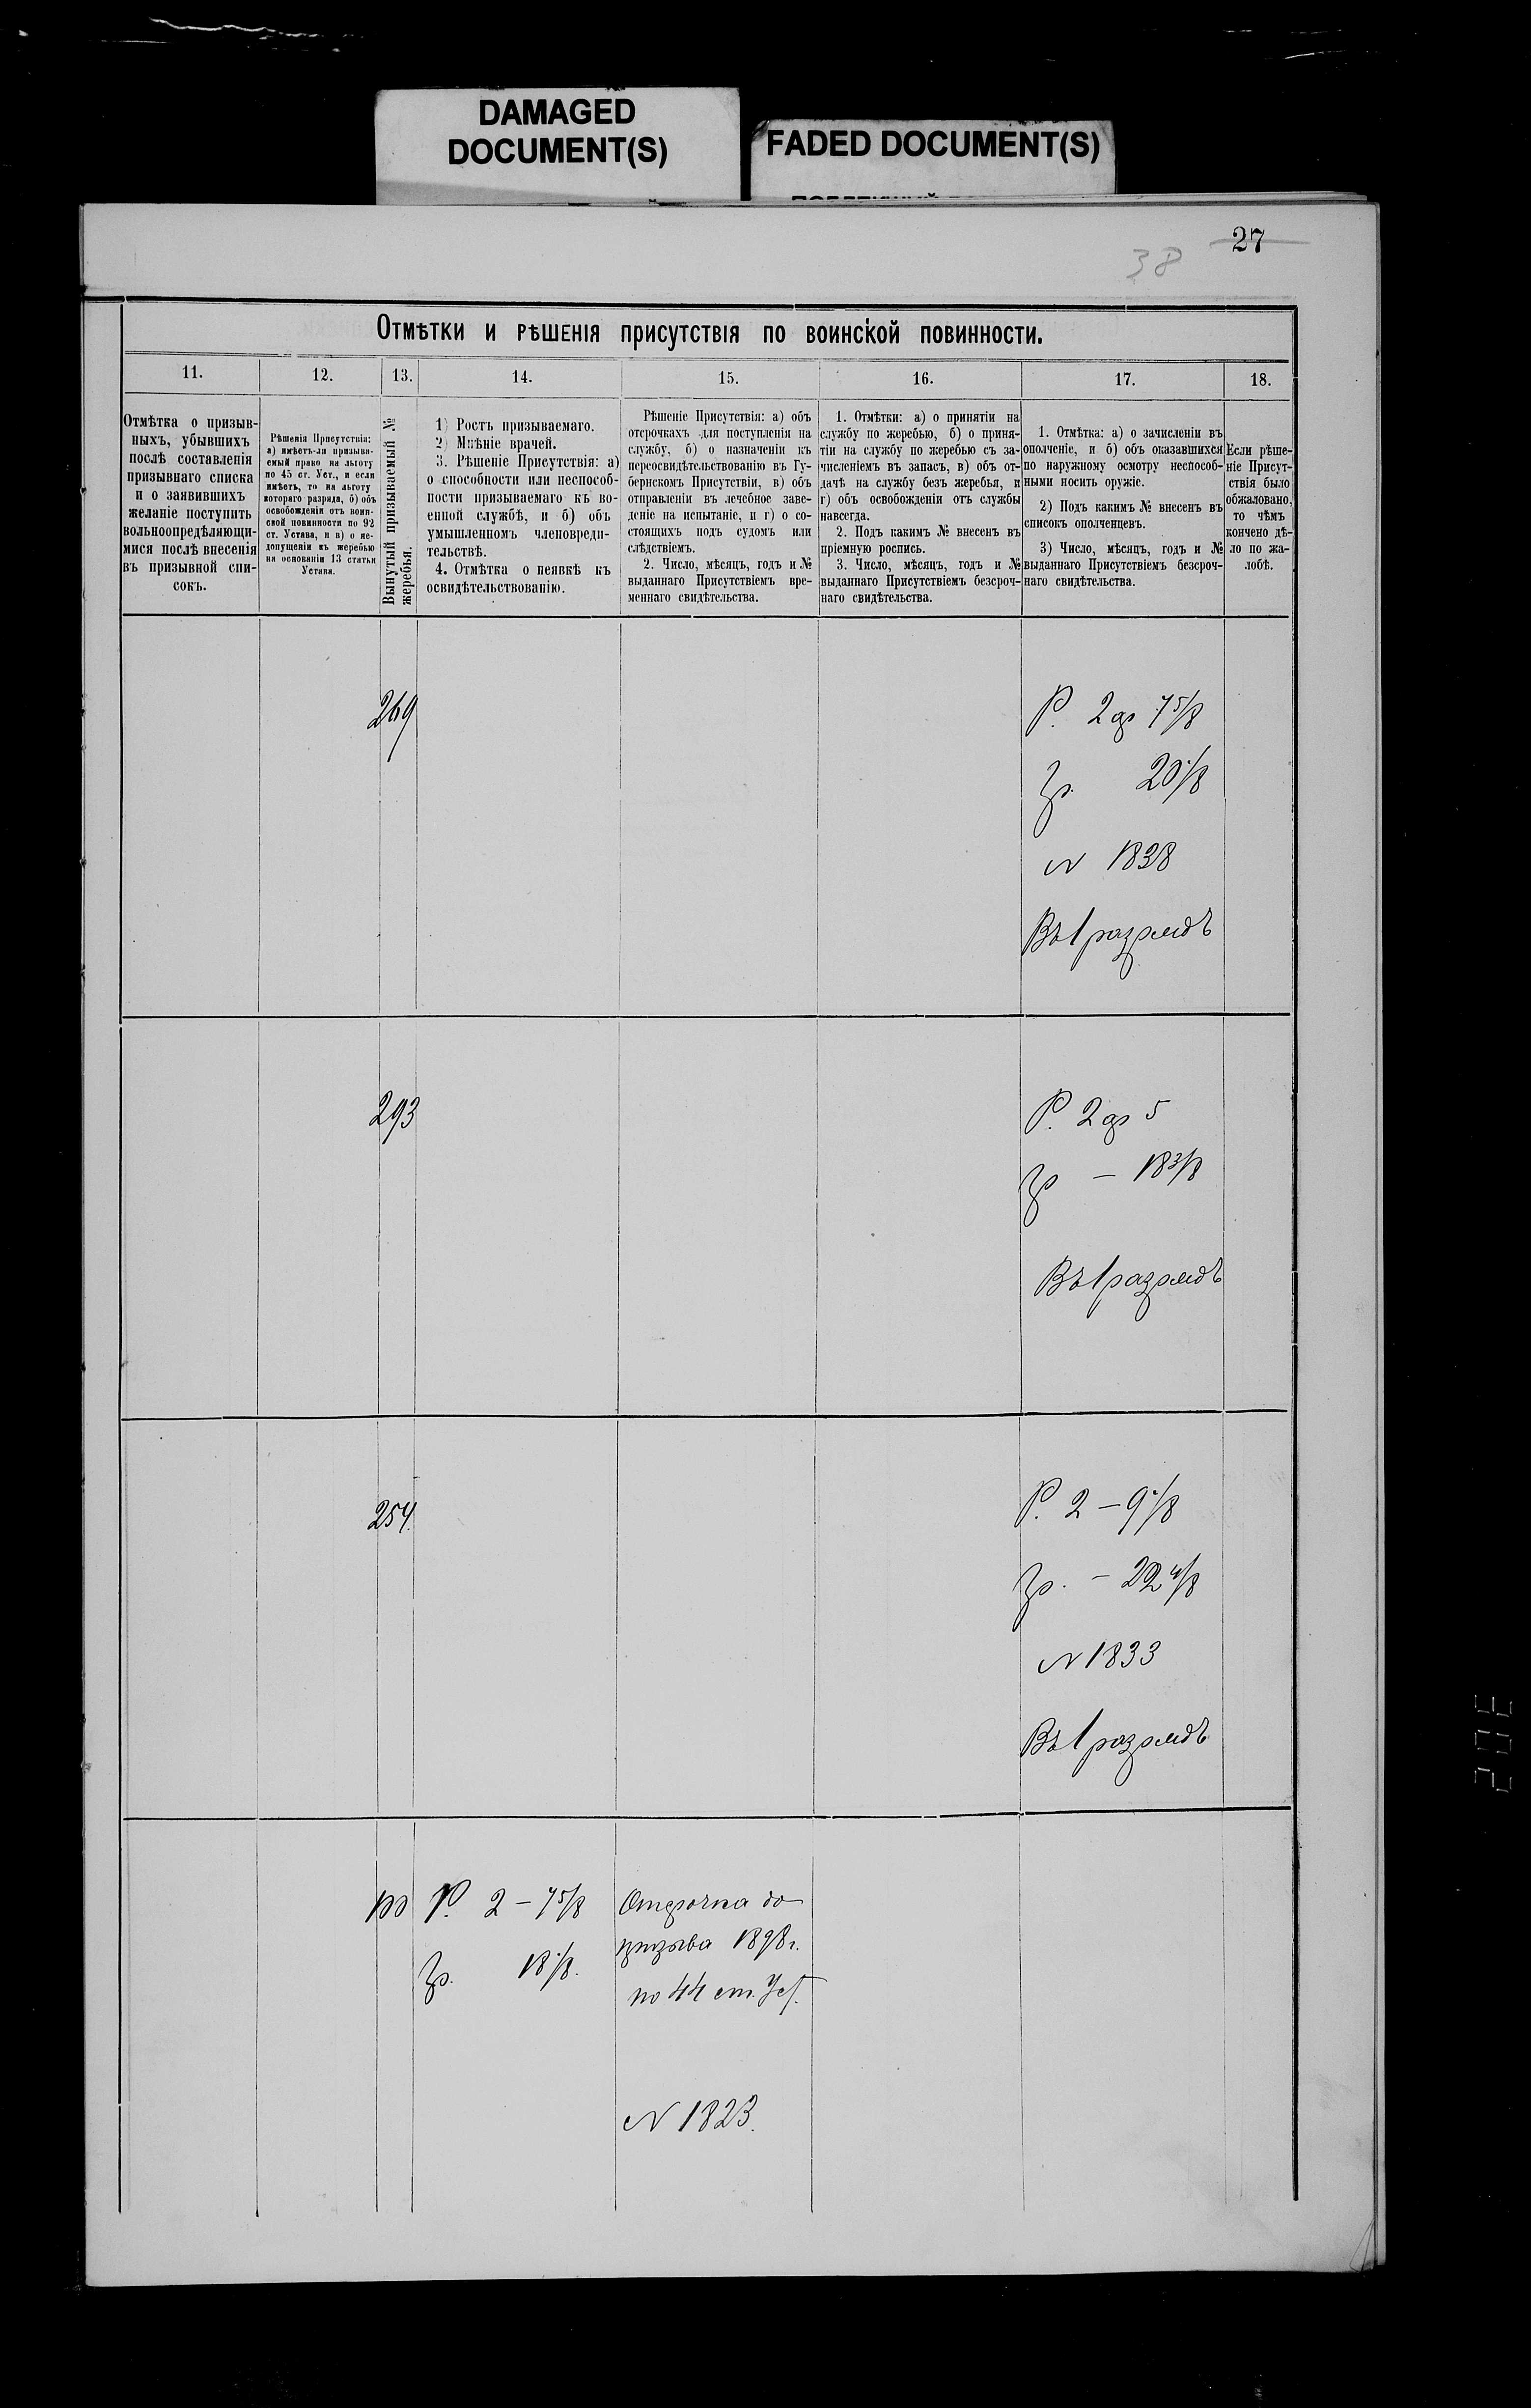 DAMAGED
DOCUMENT(S)
FADED DOCUMENT(S)
27
38
Отмѣтки и рѣшенія присутствія по воинской повинности.
11.
12.
13.
14.
15.
16.
17.
18.
Отмѣтка о призыв-
ныхъ, убывшихъ
послѣ составленія
призывнаго списка
и о заявившихъ
желаніе поступить
вольноопредѣляющи-
мися послѣ внесенія
въ призывной спи-
сокъ.
Рѣшенія Присутствія:
а) имѣетъ-ли призыва-
емый право на льготу
по 45 ст. Уст., и если
имѣетъ, то на льготу
котораго разряда, б) объ
освобожденіи отъ воин-
ской повинности по 92
ст. Устава, и в) о не-
допущеніи къ жеребью
на основаніи 13 статьи
Устава.
Вынутый призываемый №
жеребья.
1) Ростъ призываемаго.
2) Мнѣніе врачей.
3. Рѣшеніе Присутствія: а)
о способности или неспособ-
ности призываемаго къ во-
енной службѣ, и б) объ
умышленномъ членовреди-
тельствѣ.
4. Отмѣтка о неявкѣ къ
освидѣтельствованію.
Рѣшеніе Присутствія: а) объ
отсрочкахъ для поступленія на
службу, б) о назначеніи къ
переосвидѣтельствованію въ Гу-
бернскомъ Присутствіи, в) объ
отправленіи въ лечебное заве-
деніе на испытаніе, и г) о со-
стоящихъ подъ судомъ или
слѣдствіемъ.
2. Число, мѣсяцъ, годъ и №
выданнаго Присутствіемъ вре-
меннаго свидѣтельства.
1. Отмѣтки: а) о принятіи на
службу по жеребью, б) о приня-
тіи на службу по жеребью съ за-
численіемъ въ запасъ, в) объ от-
дачѣ на службу безъ жеребья, и
г) объ освобожденіи отъ службы
навсегда.
2. Подъ какимъ № внесенъ въ
пріемную роспись.
3. Число, мѣсяцъ, годъ и №
выданнаго Присутствіемъ безсроч-
наго свидѣтельства.
1. Отмѣтка: а) о зачисленіи въ
ополченіе, и б) объ оказавшихся
по наружному осмотру неспособ-
ными носить оружіе.
2) Подъ какимъ № внесенъ въ
списокъ ополченцевъ.
3) Число, мѣсяцъ, годъ и №
выданнаго Присутствіемъ безсроч-
наго свидѣтельства.
Если рѣше-
ніе Присут-
ствія было
обжаловано,
то чѣмъ
кончено дѣ-
ло по жа-
лобѣ.
269
Р. 2 ар 7 5/8
Гр. 20 /8
N 1838
Въ 1 разрядъ
293
Р. 2 ар 5
Гр – 18 3/8
Въ 1 разрядъ
254.
Р. 2 – 9 /8
Гр. – 22 4/8
N 1833
Въ 1 разрядъ
Р. 2 – 7 5/8
Гр. 18 /8.
Отсрочка до
призыва 1898 г.
по 44 ст. Уст.
N 1823.